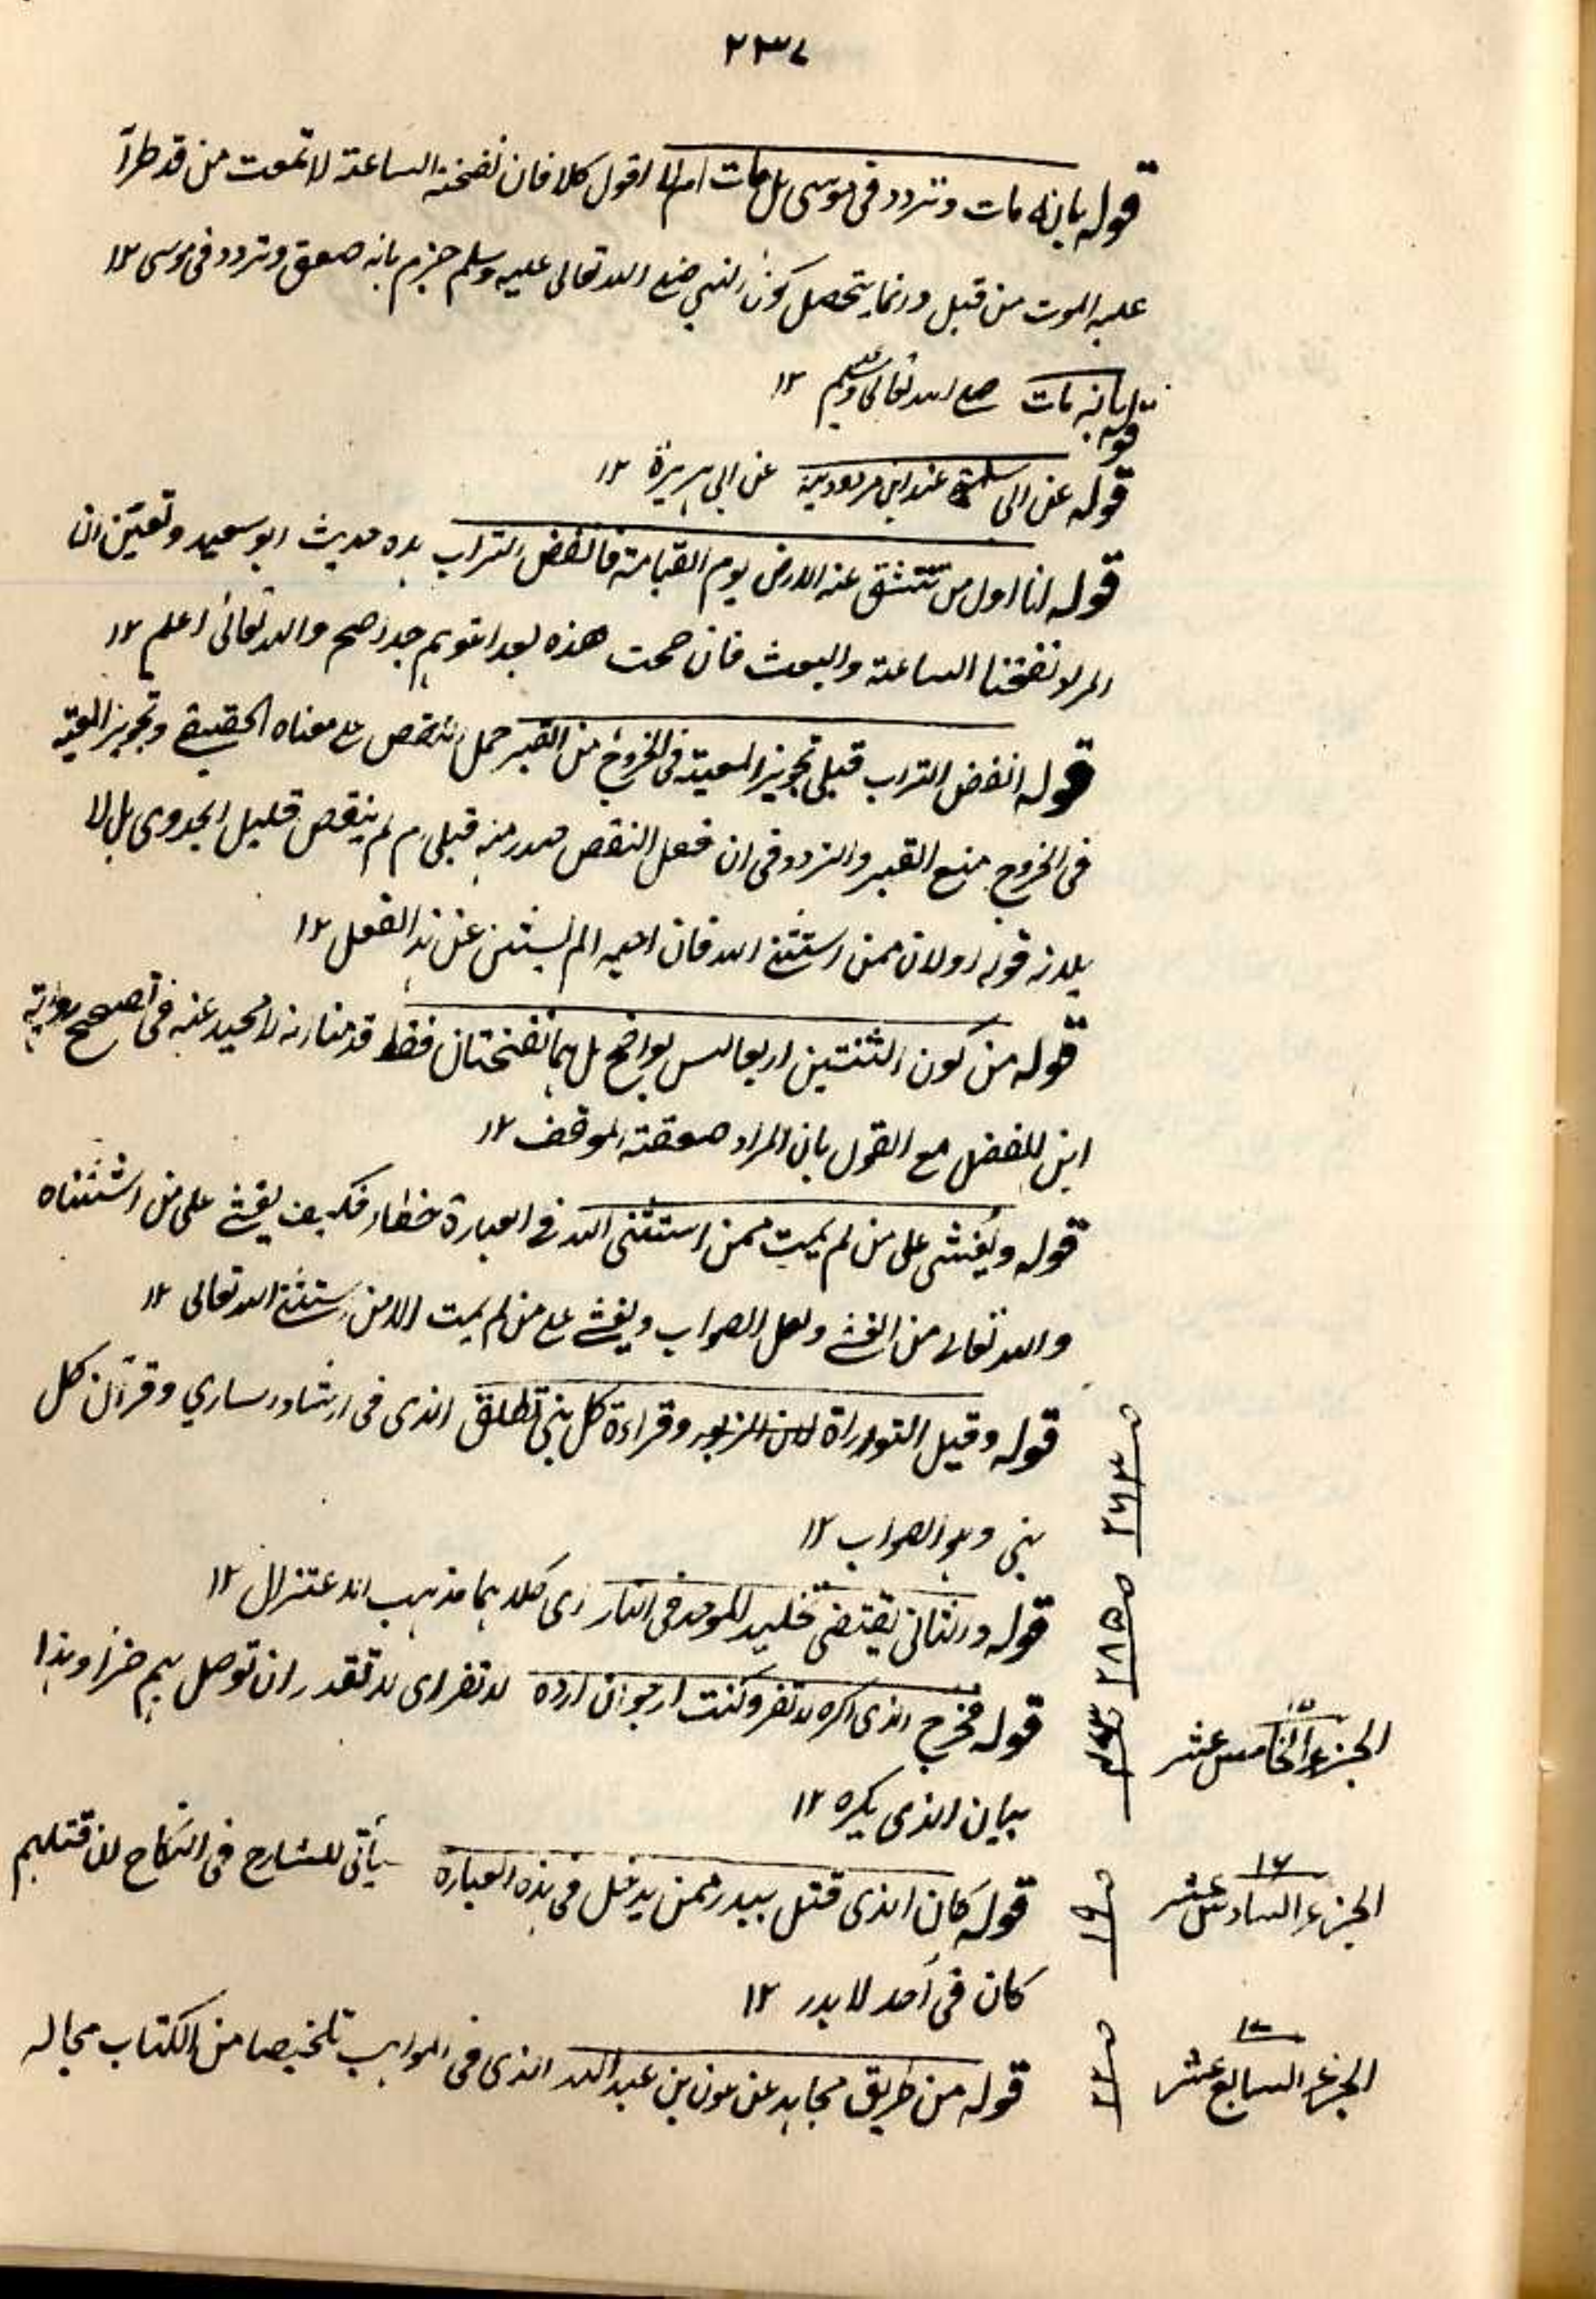 ٢٢٣٧
قوله بانه مات وتردد فی موسی بل مات ام لا اقول كلا فان نفخة الساعة لا تموت من قد طرأ
عليه الموت من قبل وانما يتحصل كون النبی صلی الله تعالی عليه وسلم جزم بانه صعق وتردد فی موسی ١٢
قوله بانه مات صلی الله تعالی عليه وسلم ١٢
قوله عن ابی سلمة عند ابن مردويه عن ابی هريرة ١٢
قوله انا اول من تنشق عنه الارض يوم القيامة فانفض التراب هذه حديث ابو سعيد وتعين ان
المراد نفختا الساعة والبعث فان صحت هذه بعد التوهم جدا صح والله تعالی اعلم ١٢
قوله انفض التراب قبلی تجويز المعية فی الخروج من القبر حمل النقص علی معناه الحقيقی وتجويز المعية
فی الخروج من القبر والتردد فی ان فعل النقص صدر منه قبلی ام لم ينقص قليل الجدوی بل لا
قوله او لان ممن استثنی الله فان لم يستثن عن هذا الفعل ١٢
قوله من كون الثنتين اربعا ليس بواضح بل هما نفختان فقط قدمنا انه لا محيد عنه فی تصحيح رواية
ابن الفضل مع القول بان المراد صعقة الموقف ١٢
قوله ويغشی علی من لم يمت ممن استثنی الله فی العبارة خطأ فكيف يغشی علی من استثناه
والله تعالی من الغشی ولعل الصواب ويغشی علی من لم يمت الا من استثنی الله تعالی ١٢
قوله وقيل التوراة الزبور وقراءة كل نبی تطلق الذی فی ارشاد الساری وقرآن كل
نبی وهو الصواب ١٢
ص ٢٧٣
قوله والثانی يقتضی تخليد الموحد فی النار ای كلاهما مذهب الاعتزال ١٢
ص ٢٨٥
قوله فخرج الذی اكره لا تفر وكنت ارجو ان ارده لا تفر ای لا تقدر ان توصل بهم ضرا وهذا
بيان الذی يكره ١٢
الجزء الخامس عشر
١٥
قوله كان الذی قتل ببدر ممن يدخل فی هذه العبارة يأتی للشارح فی النكاح ان قتلهم
كان فی أحد لا بدر ١٢
ص ١٩
١٦
الجزء السادس عشر
قوله من طريق مجاهد عن عون بن عبد الله الذی فی المواهب تلخيصا من الكتاب مجاله
١٧
الجزء السابع عشر